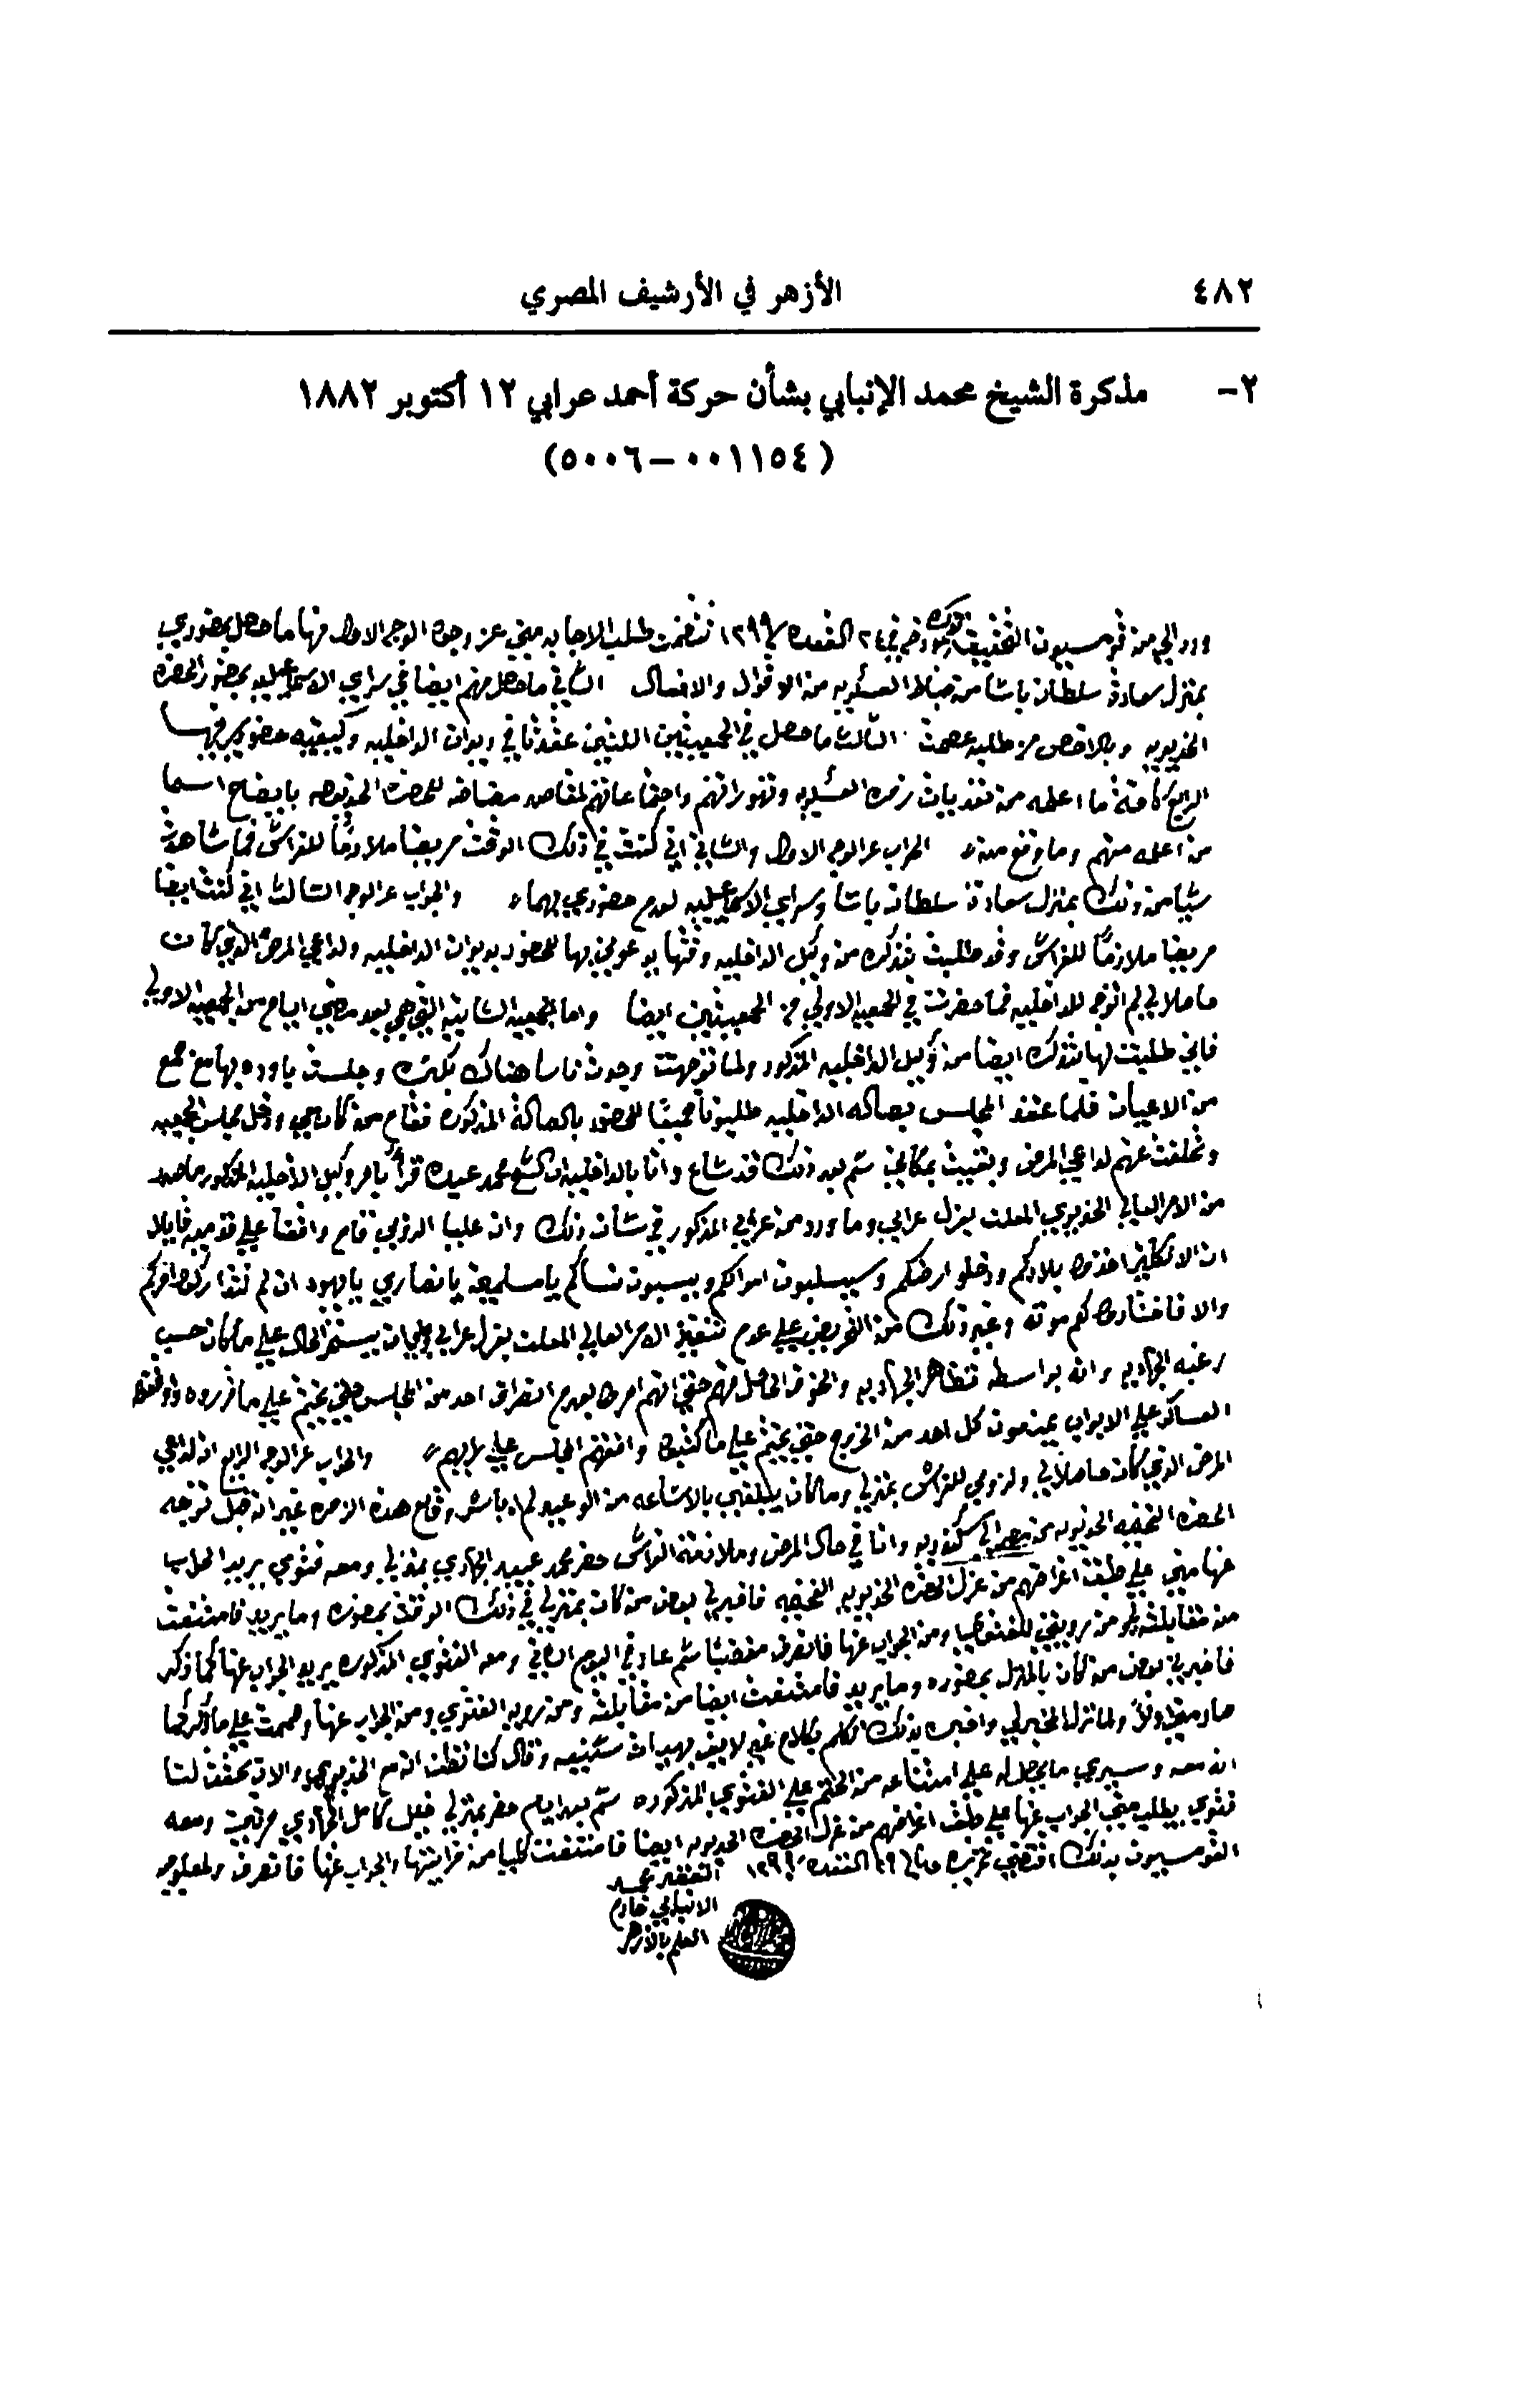 ٤٨٢
الأزهر في الأرشيف المصري
٢- مذكرة الشيخ محمد الإنبابي بشأن حركة أحمد عرابي ١٢ أكتوبر ١٨٨٢
(٥٠٠٦-٠٠١١٥٤)
ورد الي من قومسيون التحقيق تذكره مورخه في ٢٤ القعده ١٢٩٩ تتضمن طلب الاجابه مني عن وجوه الوجه الاول منها ما حصل بحضوري
بمنزل سعادة سلطان باشا من ضباط العسكريه من الاقوال والافعال الثاني ما حصل منهم ايضا في سراي الاسماعيليه بحضور الحضره
الخديويه وبالاخص من طلبه عصمت الثالث ما حصل في الجمعيتين اللتين عقدتا في ديوان الداخليه وكيفيه حضوري فيهما
الرابع كافة ما اعلمه من تعديات زمره العسكريه وتهوراتهم واجتماعاتهم لمقاصد مضاده للحضره الخديويه بايضاح اسما
من اعلمه منهم وما وقع منه الجواب عن الوجه الاول والثاني اني كنت في ذلك الوقت مريضا ملازما للفراش فما شاهدت
شيا من ذلك بمنزل سعادة سلطان باشا وسراي الاسماعيليه لعدم حضوري بهما والجواب عن الوجه الثالث اني كنت ايضا
مريضا ملازما للفراش وقد طلبت بتذكره من وكيل الداخليه وقتها يدعوني بها للحضور بديوان الداخليه ولداعي المرض الذي كان
حاصلا لي لم اتوجه للداخليه فما حضرت في الجمعيه الاولي من الجمعيتين ايضا واما الجمعيه الثانيه التي هي بعد مضي ايام من الجمعيه الاولي
فاني طلبت لها بتذكره ايضا من وكيل الداخليه المذكور ولما توجهت وجدت ناسا هناك بكثره وجلست باوده بها مع جمع
من الاعيان فلما عقد المجلس بصاله الداخليه طلبونا جميعا للحضور بالصالة المذكوره فقام من كان معي ودخل مجلس الجمعيه
وتخلفت عنهم لداعي المرض وبقيت بمكاني ثم بعد ذلك قد شاع وانا بالداخليه ان الشيخ محمد عبده قرأ بامر وكيل الداخليه المذكور ما صدر
من الامر العالي الخديوي المعلن بعزل عرابي وما ورد من عرابي المذكور في شان ذلك وان عليا الروبي قام واقفا علي قدميه قايلا
ان الانكليز اخذوا بلادكم ودخلو ارضكم وسيسلبون اموالكم ويسبون نساكم يا مسلمين يا نصاري يا يهود ان لم تتداركوا امركم
والا فاختاروا لكم موته وغير ذلك من التحريض علي عدم تنفيذ الامر العالي المعلن بعزل عرابي وان يستمر الحال علي ما كان حسب
رغبه الجهاديه وانه بواسطه تظاهر الجهاديه والخوف الحاصل منهم حتي انهم امروا بعدم انصراف احد من المجلس حتي يختم علي ما قرروه واوقفوا
العساكر علي الابواب يمنعون كل احد من الخروج حتي يختم علي ما كتبوا وافقهم المجلس علي رايهم والجواب عن الوجه الرابع انه لداعي
المرض الذي كان حاصلا لي ولزومي للفراش بمنزلي وما كان يبلغني بالاشاعه من الوعيد لم اباشر وقايع هذه الزمره غير انه قبل توجه
الحضره الفخيمه الخديويه من مصر الي سكندريه وانا في حال المرض وملازمة الفراش حضر محمد عبيد الجهادي بمنزلي ومعه فتوي يريد الجواب
عنها مني علي طبق اغراضهم من عزل الحضره الخديويه الفخيمه فاخبرني بعض من كان بمنزلي في ذلك الوقت بحضوره وما يريد فامتنعت
من مقابلته ومن رويتي للفتوي ومن الجواب عنها فانصرف مغضبا ثم عاد في اليوم الثاني ومعه الفتوي المذكوره يريد الجواب عنها كما ذكر
فاخبرني بعض من كان بالمنزل بحضوره وما يريد فامتنعت ايضا من مقابلته ومن رويه الفتوي ومن الجواب عنها وصممت علي ما ذكر كما
صار مني اولا ولما نزل المخبر لي واخبره بذلك تكلم بكلام غير لايق بهيئات شنيعه وقال كنا نظن انه مع الخديوي والان تحقق لنا
انه معه وسيري ما يحصل له علي امتناعه من الختم علي الفتوي المذكوره ثم بعد ايام حضر بمنزلي خليل كامل الجهادي مرتين ومعه
فتوي يطلب مني الجواب عنها علي طبق اغراضهم من عزل الحضره الخديويه ايضا فامتنعت كليا من قرايتها والجواب عنها فانصرف ولمعلوميه
القومسيون بذلك اقتضي تحريره القعده ١٢٩٩
الفقير محمد
الانبابي خادم
العلم بالازهر